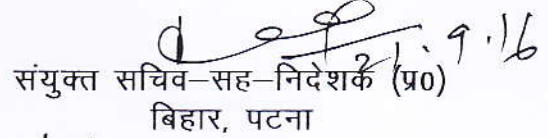 21.9.16
संयुक्त सचिव–सह–निदेशक (प्र0)
बिहार, पटना